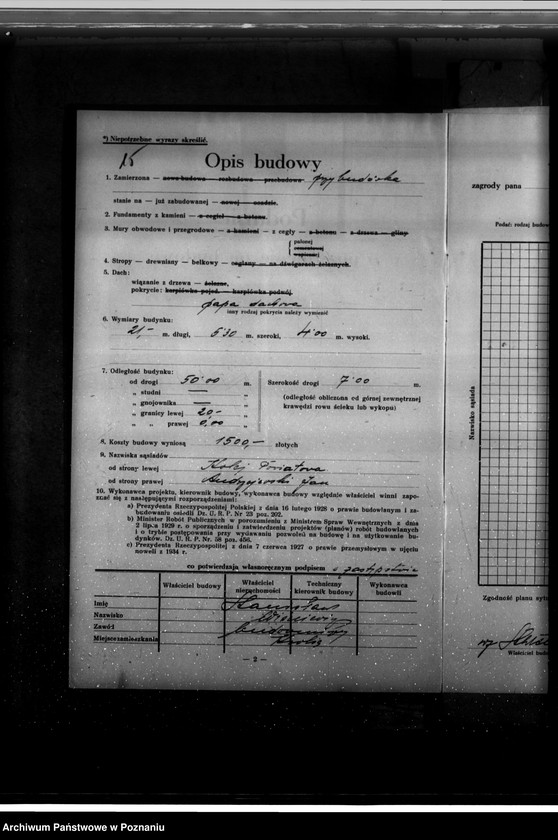 *) Niepotrzebne wyrazy skreślić.
15
Opis budowy
1. Zamierzona — nowo budowa — rozbudowa — przebudowa przybudówka
stanie na — już zabudowanej — nowej — osadzie.
2. Fundamenty z kamieni — z cegieł — z betonu.
3. Mury obwodowe i przegrodowe — z kamieni — z cegły — z betonu — z drzewa — gliny
palonej
cementowej
wapiennej
4. Stropy — drewniany — belkowy — ceglany — na dźwigarach żelaznych.
5. Dach:
wiązanie z drzewa — żelazne,
pokrycie: karpiówka pojed. — karpiówka podwój.
papa dachowa
inny rodzaj pokrycia należy wymienić
6. Wymiary budynku:
21,— m. długi, 6·30 m. szeroki, 4·00 m. wysoki.
7. Odległość budynku:
od drogi 50·00 m. Szerokość drogi 7·00 m.
„ studni — „
„ gnojownika — „
„ granicy lewej 20,— „
„ „ prawej 0,00 „
(odległość obliczona od górnej zewnętrznej
krawędzi rowu ścieku lub wykopu)
8. Koszty budowy wyniosą 1500,— złotych
9. Nazwiska sąsiadów
od strony lewej Kolej Powiatowa
od strony prawej Jan
10. Wykonawca projektu, kierownik budowy, wykonawca budowy względnie właściciel winni zapo-
znać się z następującymi rozporządzeniami:
a) Prezydenta Rzeczypospolitej Polskiej z dnia 16 lutego 1928 o prawie budowlanym i za-
budowaniu osiedli Dz. U. R. P. Nr 23 poz. 202.
b) Minister Robót Publicznych w porozumieniu z Ministrem Spraw Wewnętrznych z dnia
2 lipca 1929 r. o sporządzeniu i zatwierdzeniu projektów (planów) robót budowlanych
i o trybie postępowania przy wydawaniu pozwoleń na budowę i na użytkowanie bu-
dynków. Dz. U. R. P. Nr. 58 poz. 456.
c) Prezydenta Rzeczypospolitej z dnia 7 czerwca 1927 o prawie przemysłowym w ujęciu
noweli z 1934 r.
co potwierdzają własnoręcznym podpisem w zastępstwie
Właściciel budowy
Właściciel nieruchomości
Techniczny kierownik budowy
Wykonawca budowli
Imię Stanisław
Nazwisko
Zawód budowniczy
Miejsce zamieszkania
— 2 —
zagrody pana
Podać: rodzaj budow
Nazwisko sąsiada
Zgodność planu sytu
Właściciel budo
Archiwum Państwowe w Poznaniu